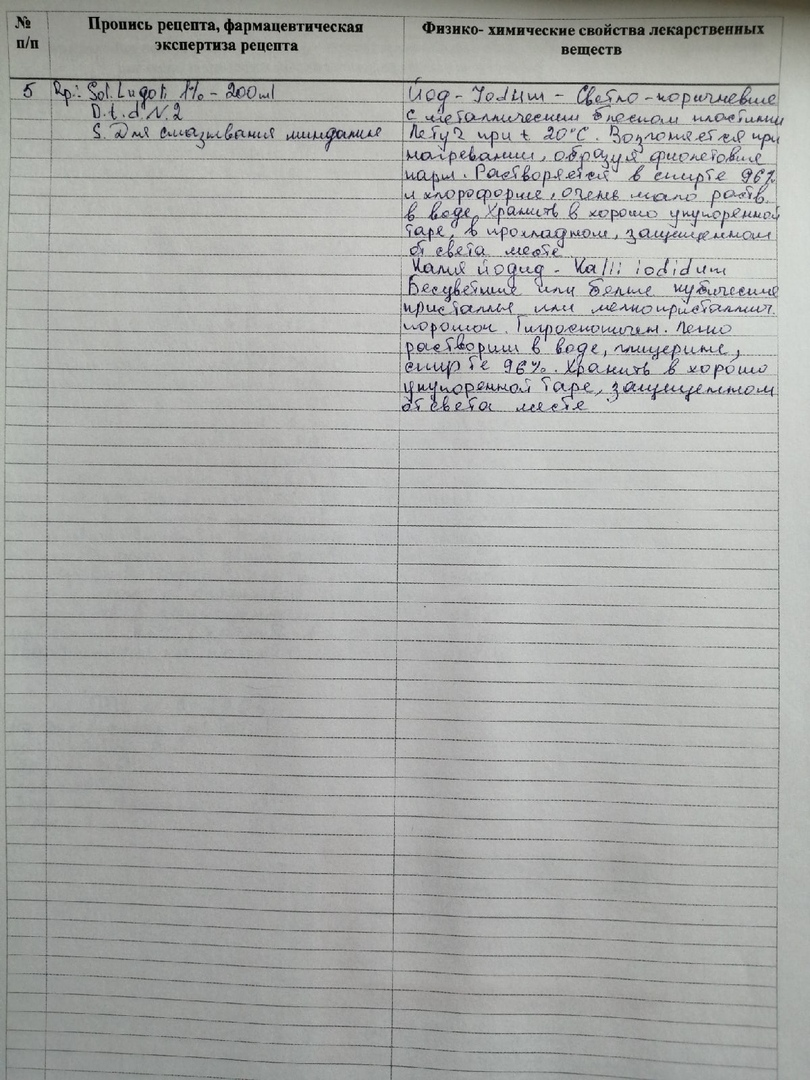 №
п/п
Пропись рецепта, фармацевтическая
экспертиза рецепта
Физико- химические свойства лекарственных
веществ
5
Rp.: Sol. Lugoli 1% - 200ml
D.t.d. N.2
S. Для смазывания миндалин
Йод - Iodum - Светло-коричневые
с металлическим блеском пластинки
Летуч при t 20°C. Возгоняется при
нагревании, образуя фиолетовые
пары. Растворяется в спирте 96%
и хлороформе, очень мало раств.
в воде. Хранить в хорошо укупоренной
таре, в прохладном, защищенном
от света месте
Калия йодид - Kalii iodidum
Бесцветные или белые кубические
кристаллы или мелкокристаллич.
порошок. Гигроскопичен. Легко
растворим в воде, глицерине,
спирте 96%. Хранить в хорошо
укупоренной таре, защищенном
от света месте